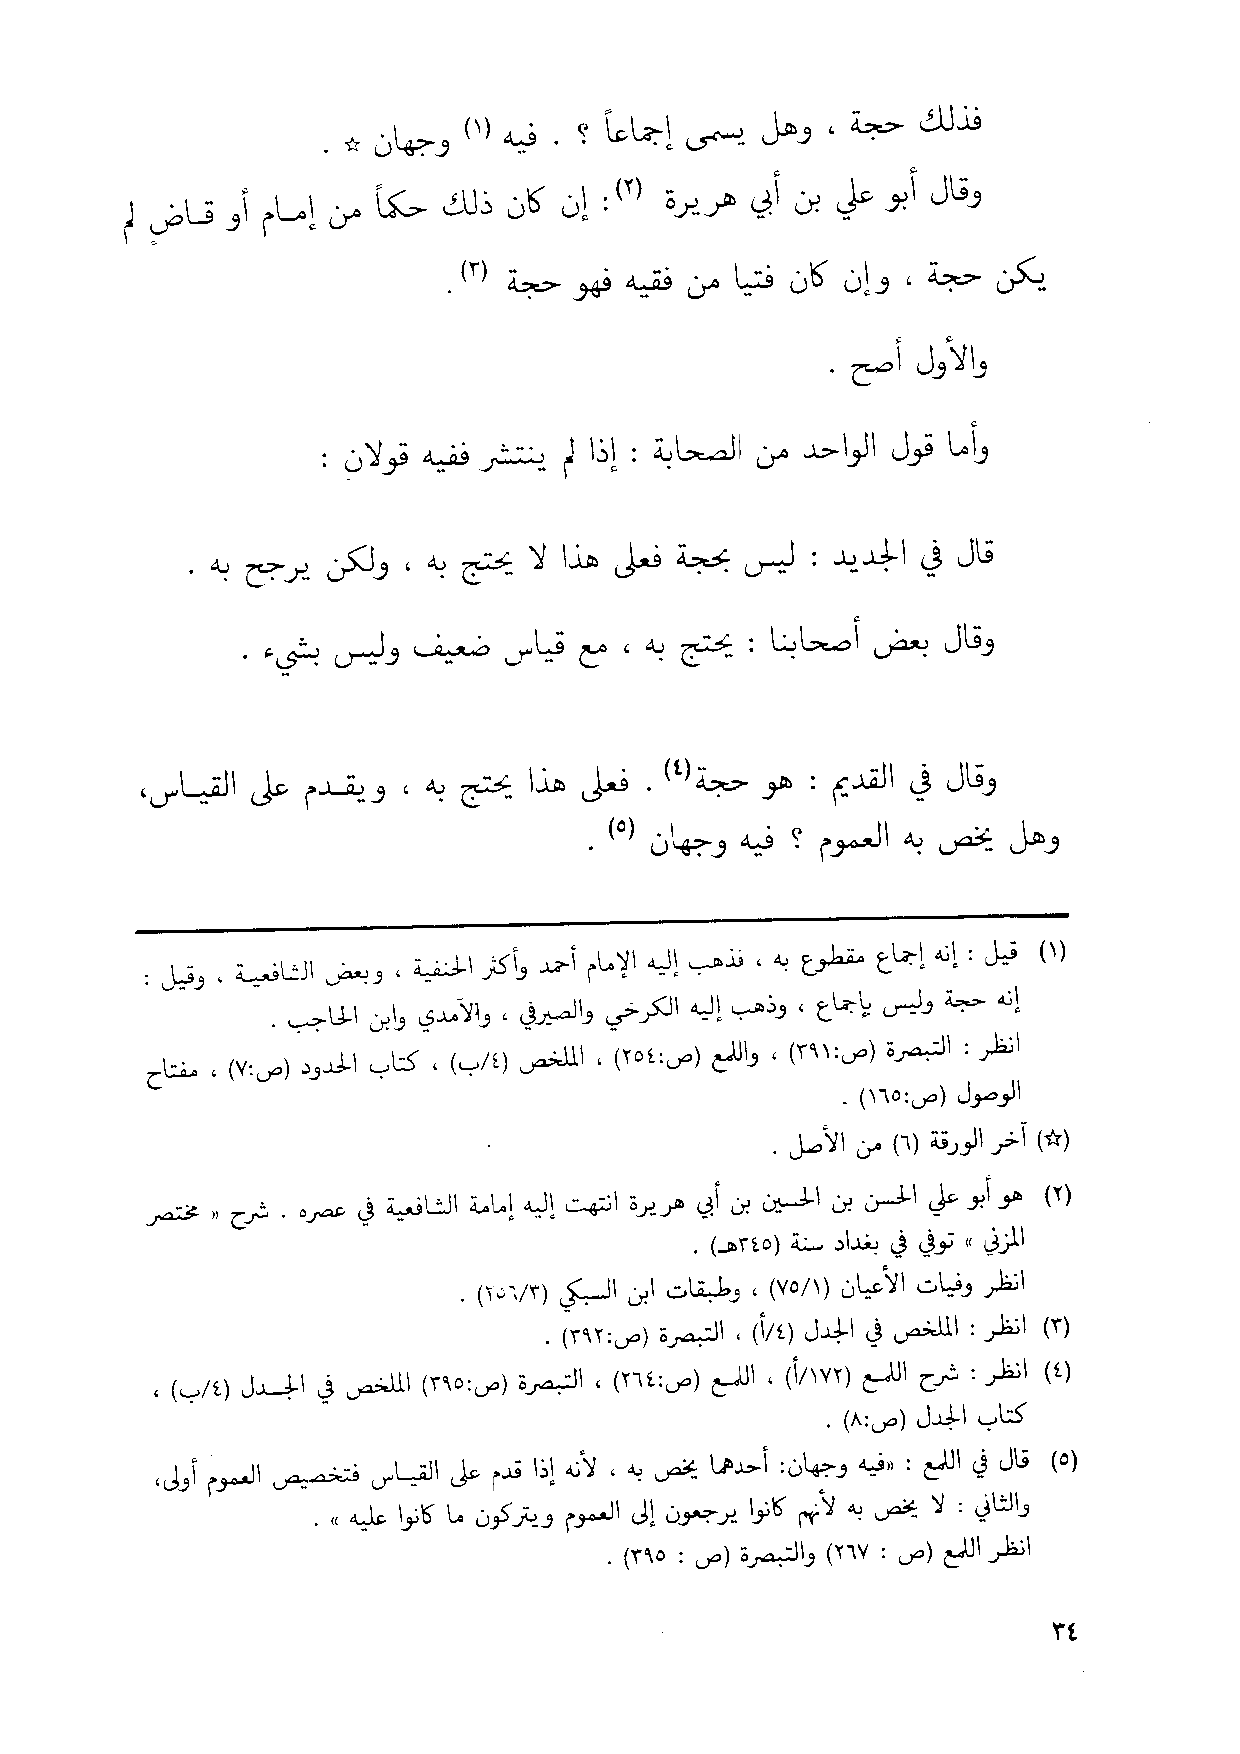 فذلك حجة ، وهل يسمى إجماعاً ؟ . فيه (١) وجهان ☆ .
وقال أبو علي بن أبي هريرة (٢) : إن كان ذلك حكماً من إمام أو قاضٍ لم
يكن حجة ، وإن كان فتيا من فقيه فهو حجة (٣) .
والأول أصح .
وأما قول الواحد من الصحابة : إذا لم ينتشر ففيه قولان :
قال في الجديد : ليس بحجة فعلى هذا لا يحتج به ، ولكن يرجح به .
وقال بعض أصحابنا : يحتج به ، مع قياس ضعيف وليس بشيء .
وقال في القديم : هو حجة(٤) . فعلى هذا يحتج به ، ويقدم على القياس،
وهل يخص به العموم ؟ فيه وجهان (٥) .
(١) قيل : إنه إجماع مقطوع به ، فذهب إليه الإمام أحمد وأكثر الحنفية ، وبعض الشافعية ، وقيل :
إنه حجة وليس بإجماع ، وذهب إليه الكرخي والصيرفي ، والآمدي وابن الحاجب .
انظر : التبصرة (ص:٣٩١) ، واللمع (ص:٢٥٤) ، الملخص (٤/ب) ، كتاب الحدود (ص:٧) ، مفتاح
الوصول (ص:١٦٥) .
(☆) آخر الورقة (٦) من الأصل .
(٢) هو أبو علي الحسن بن الحسين بن أبي هريرة انتهت إليه إمامة الشافعية في عصره . شرح « مختصر
المزني » توفي في بغداد سنة (٣٤٥هـ) .
انظر وفيات الأعيان (٧٥/١) ، وطبقات ابن السبكي (٢٥٦/٣) .
(٣) انظر : الملخص في الجدل (٤/أ) ، التبصرة (ص:٣٩٢) .
(٤) انظر : شرح اللمع (١٧٢/أ) ، اللمع (ص:٢٦٤) ، التبصرة (ص:٣٩٥) الملخص في الجدل (٤/ب) ،
كتاب الجدل (ص:٨) .
(٥) قال في اللمع : «فيه وجهان: أحدهما يخص به ، لأنه إذا قدم على القياس فتخصيص العموم أولى،
والثاني : لا يخص به لأنهم كانوا يرجعون إلى العموم ويتركون ما كانوا عليه » .
انظر اللمع (ص : ٢٦٧) والتبصرة (ص : ٣٩٥) .
٣٤